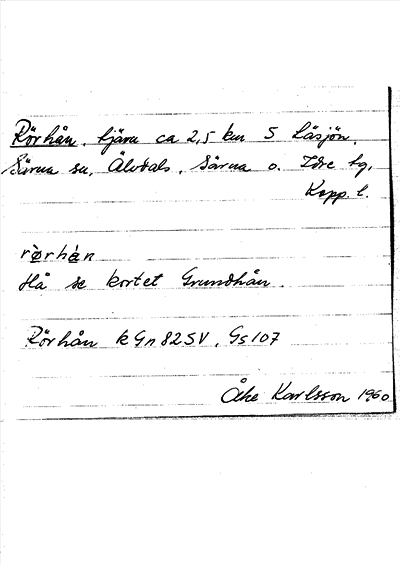 Rörhån, tjärn ca 2,5 km S Låsjön.
Särna sn, Älvdals, Särna o. Idre tg,
Kopp. l.
rörhån
Hå se kortet Grundhån.
Rörhån kGn 82SV, Gs107
Åke Karlsson 1960